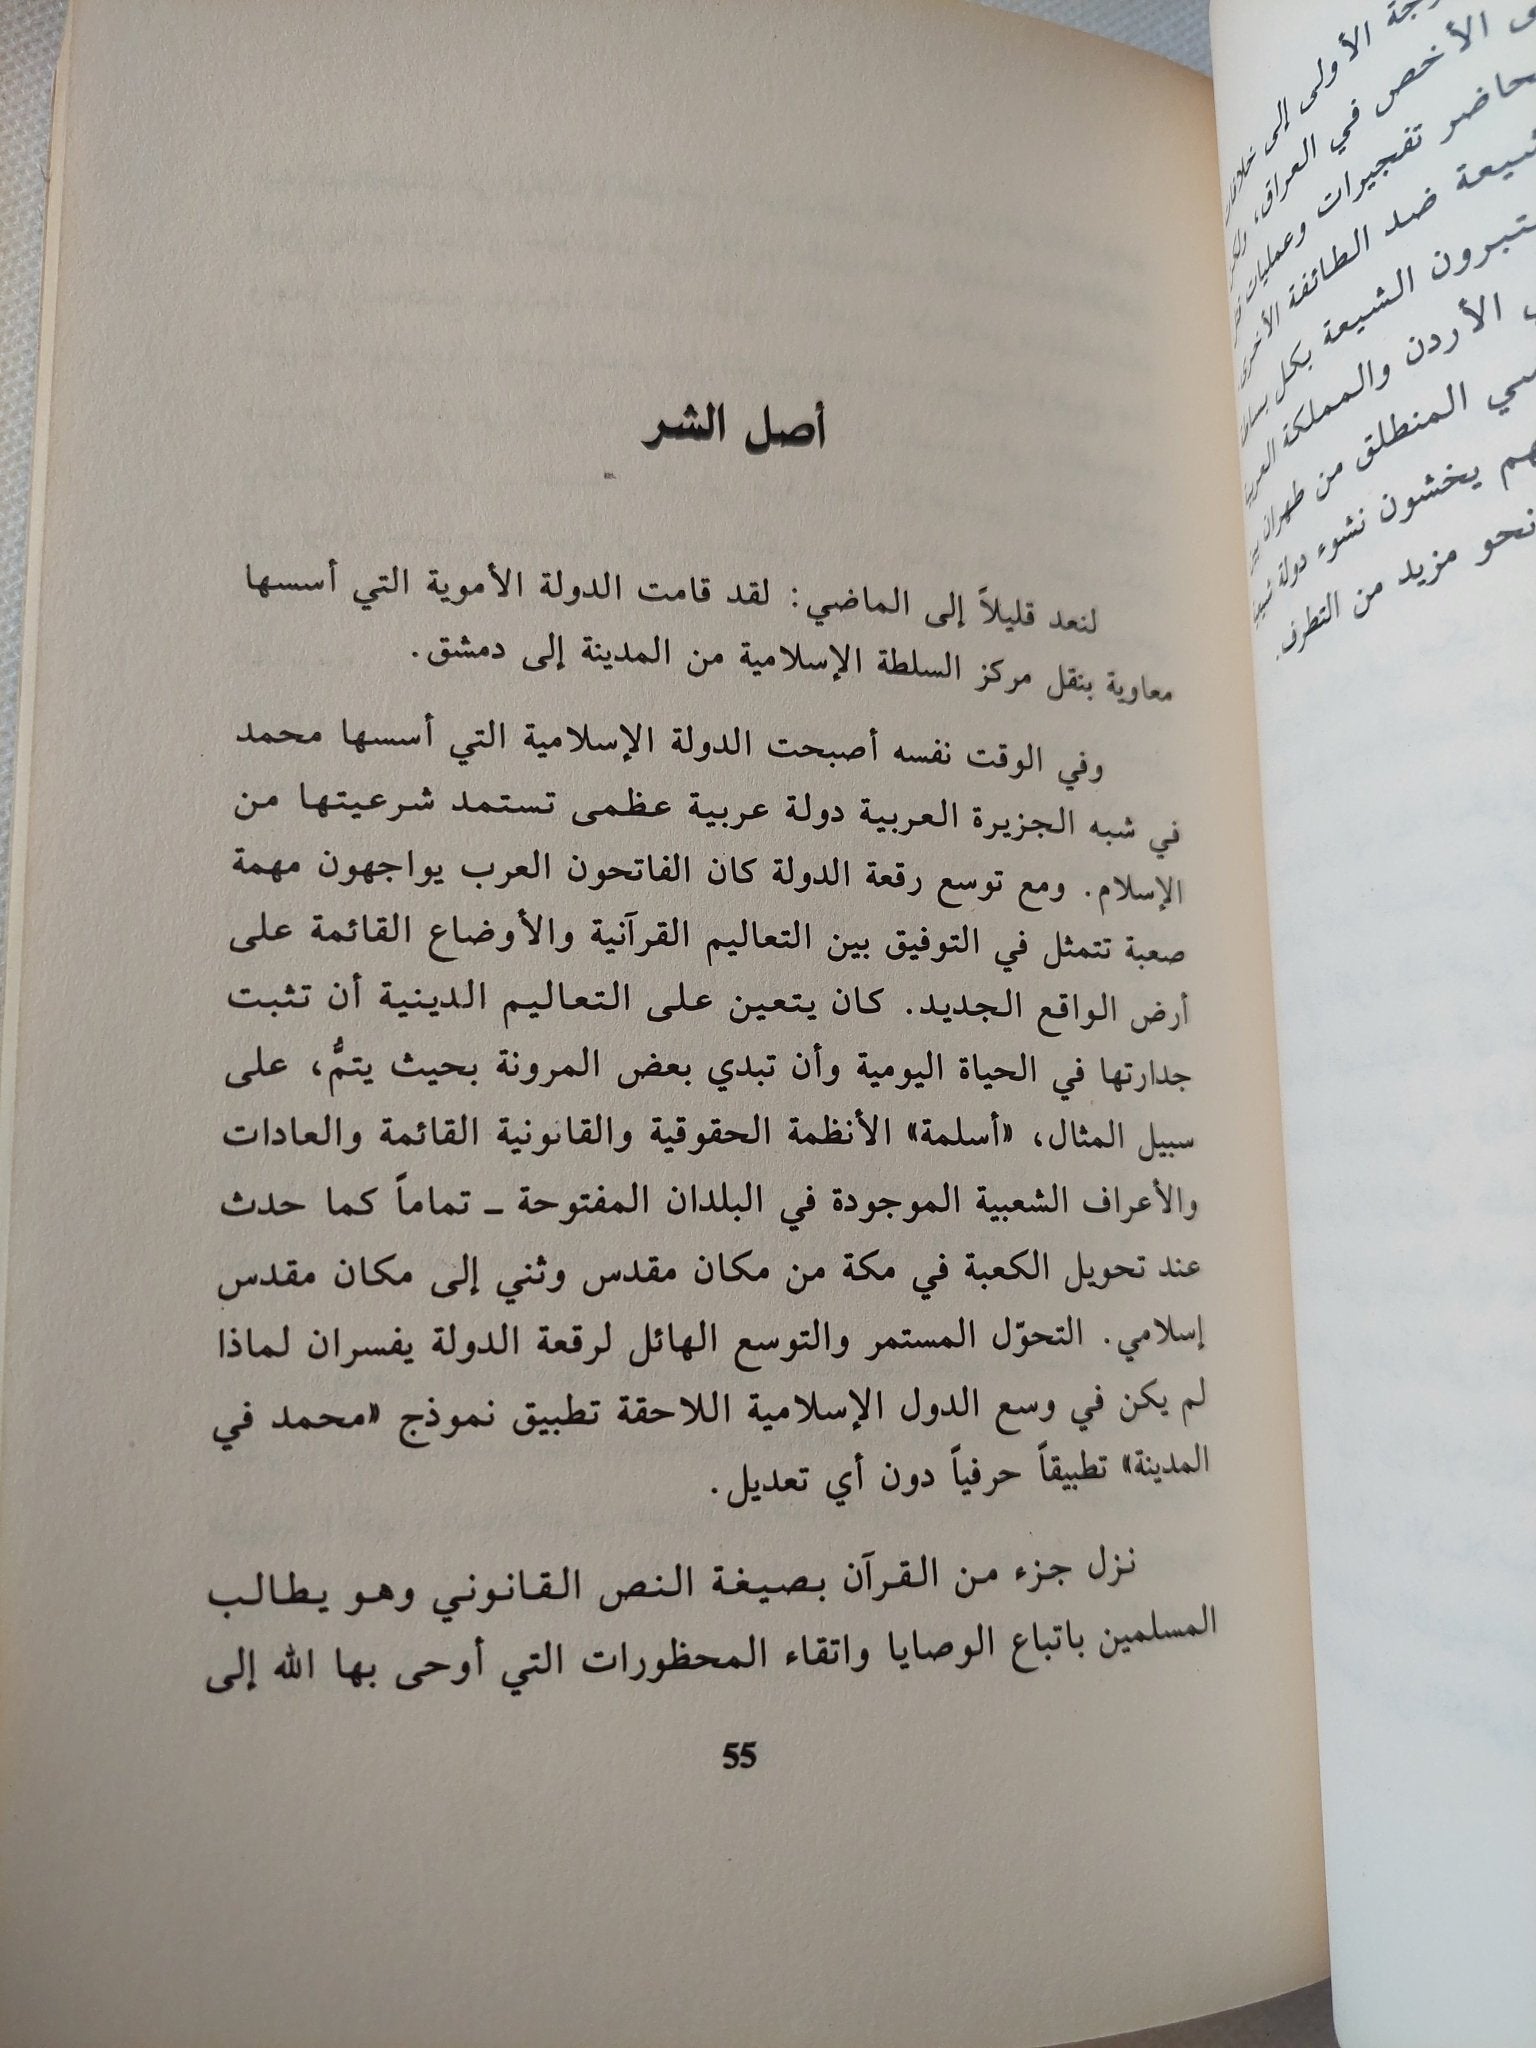 الأولى إلى
الأخص في العراق،
تفجيرات وعمليات
ضد الطائفة الأخرى
الشيعة بكل
الأردن والمملكة
المنطلق من طهران
يخشون نشوء دولة
نحو مزيد من التطرف.
أصل الشر
لنعد قليلاً إلى الماضي: لقد قامت الدولة الأموية التي أسسها
معاوية بنقل مركز السلطة الإسلامية من المدينة إلى دمشق.
وفي الوقت نفسه أصبحت الدولة الإسلامية التي أسسها محمد
في شبه الجزيرة العربية دولة عربية عظمى تستمد شرعيتها من
الإسلام. ومع توسع رقعة الدولة كان الفاتحون العرب يواجهون مهمة
صعبة تتمثل في التوفيق بين التعاليم القرآنية والأوضاع القائمة على
أرض الواقع الجديد. كان يتعين على التعاليم الدينية أن تثبت
جدارتها في الحياة اليومية وأن تبدي بعض المرونة بحيث يتمُّ، على
سبيل المثال، «أسلمة» الأنظمة الحقوقية والقانونية القائمة والعادات
والأعراف الشعبية الموجودة في البلدان المفتوحة ـ تماماً كما حدث
عند تحويل الكعبة في مكة من مكان مقدس وثني إلى مكان مقدس
إسلامي. التحوّل المستمر والتوسع الهائل لرقعة الدولة يفسران لماذا
لم يكن في وسع الدول الإسلامية اللاحقة تطبيق نموذج «محمد في
المدينة» تطبيقاً حرفياً دون أي تعديل.
نزل جزء من القرآن بصيغة النص القانوني وهو يطالب
المسلمين باتباع الوصايا واتقاء المحظورات التي أوحى بها الله إلى
55